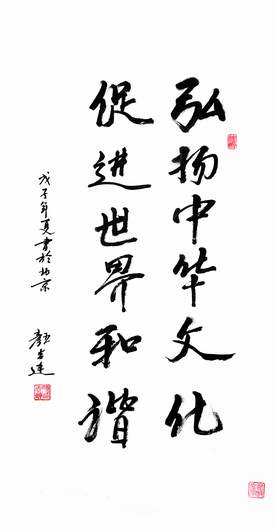 弘扬中华文化
促进世界和谐
戊子年夏书於北京
颜